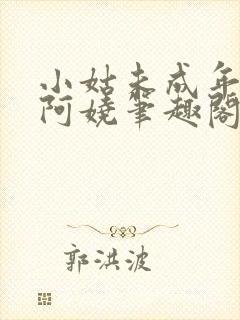 小姑未成年
阿娆笔趣阁
郭洪波